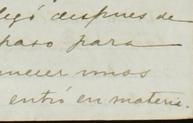 legó despues de
paso para
unos
entró en materia.